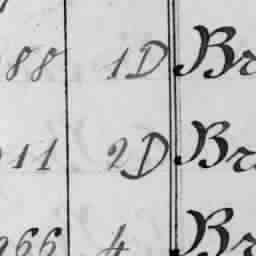 88 1D Br
11 2D Br
966 4 Br